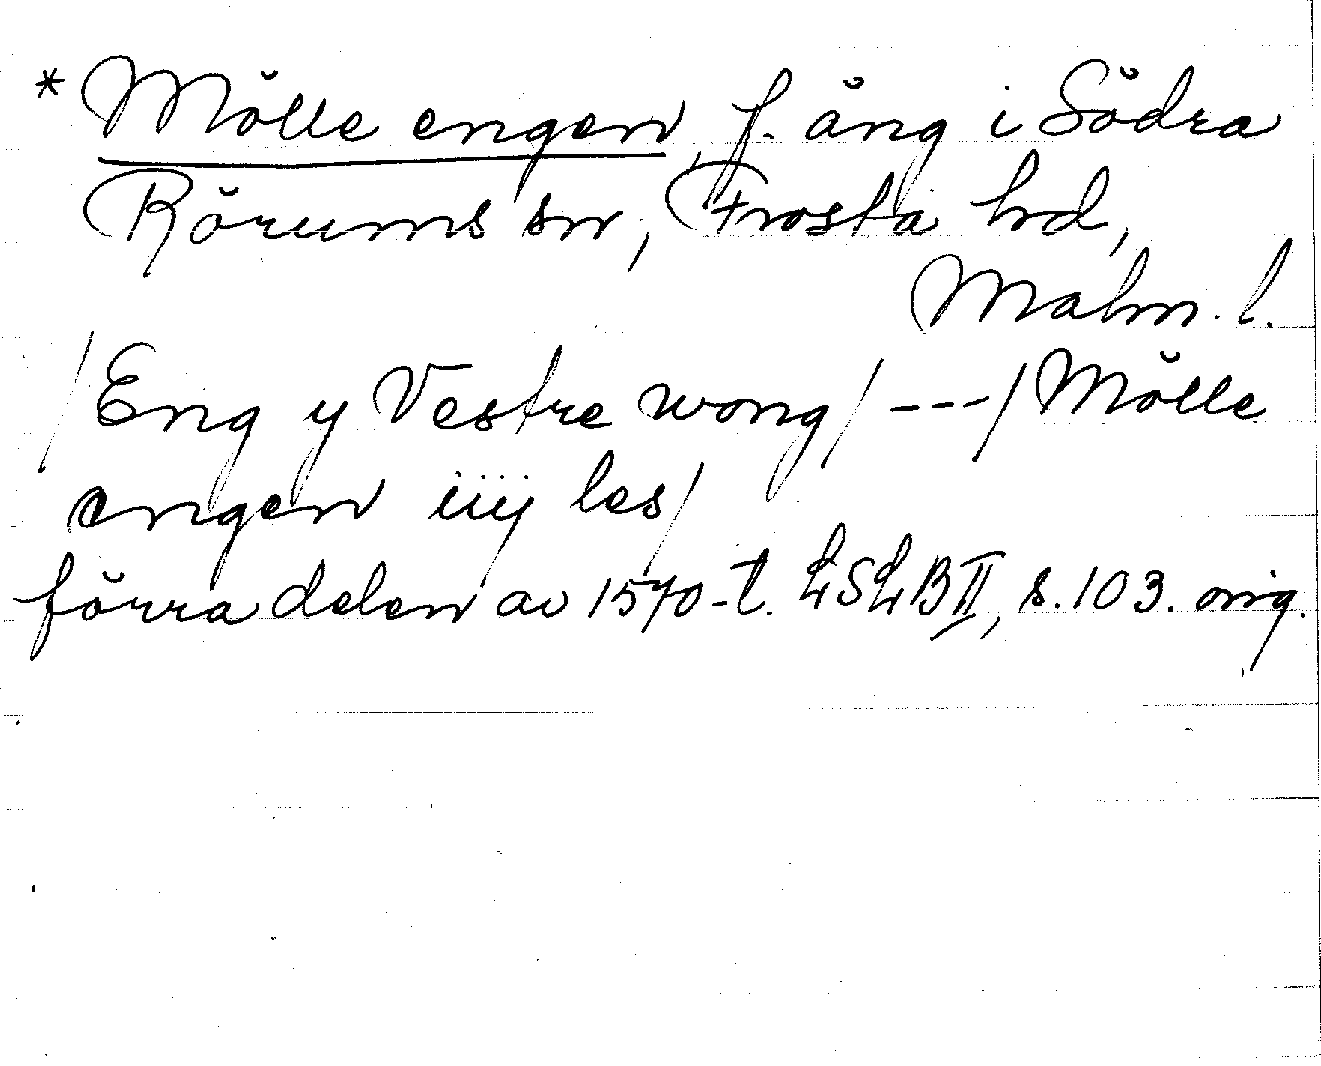 * Mölle engen, f. äng i Södra
Rörums sn, Frosta hd,
Malm. l.
/Eng y Vestre wong/ ---/Mölle
engen iiij les/
förra delen av 1570-t. LSLB II, s. 103. orig.